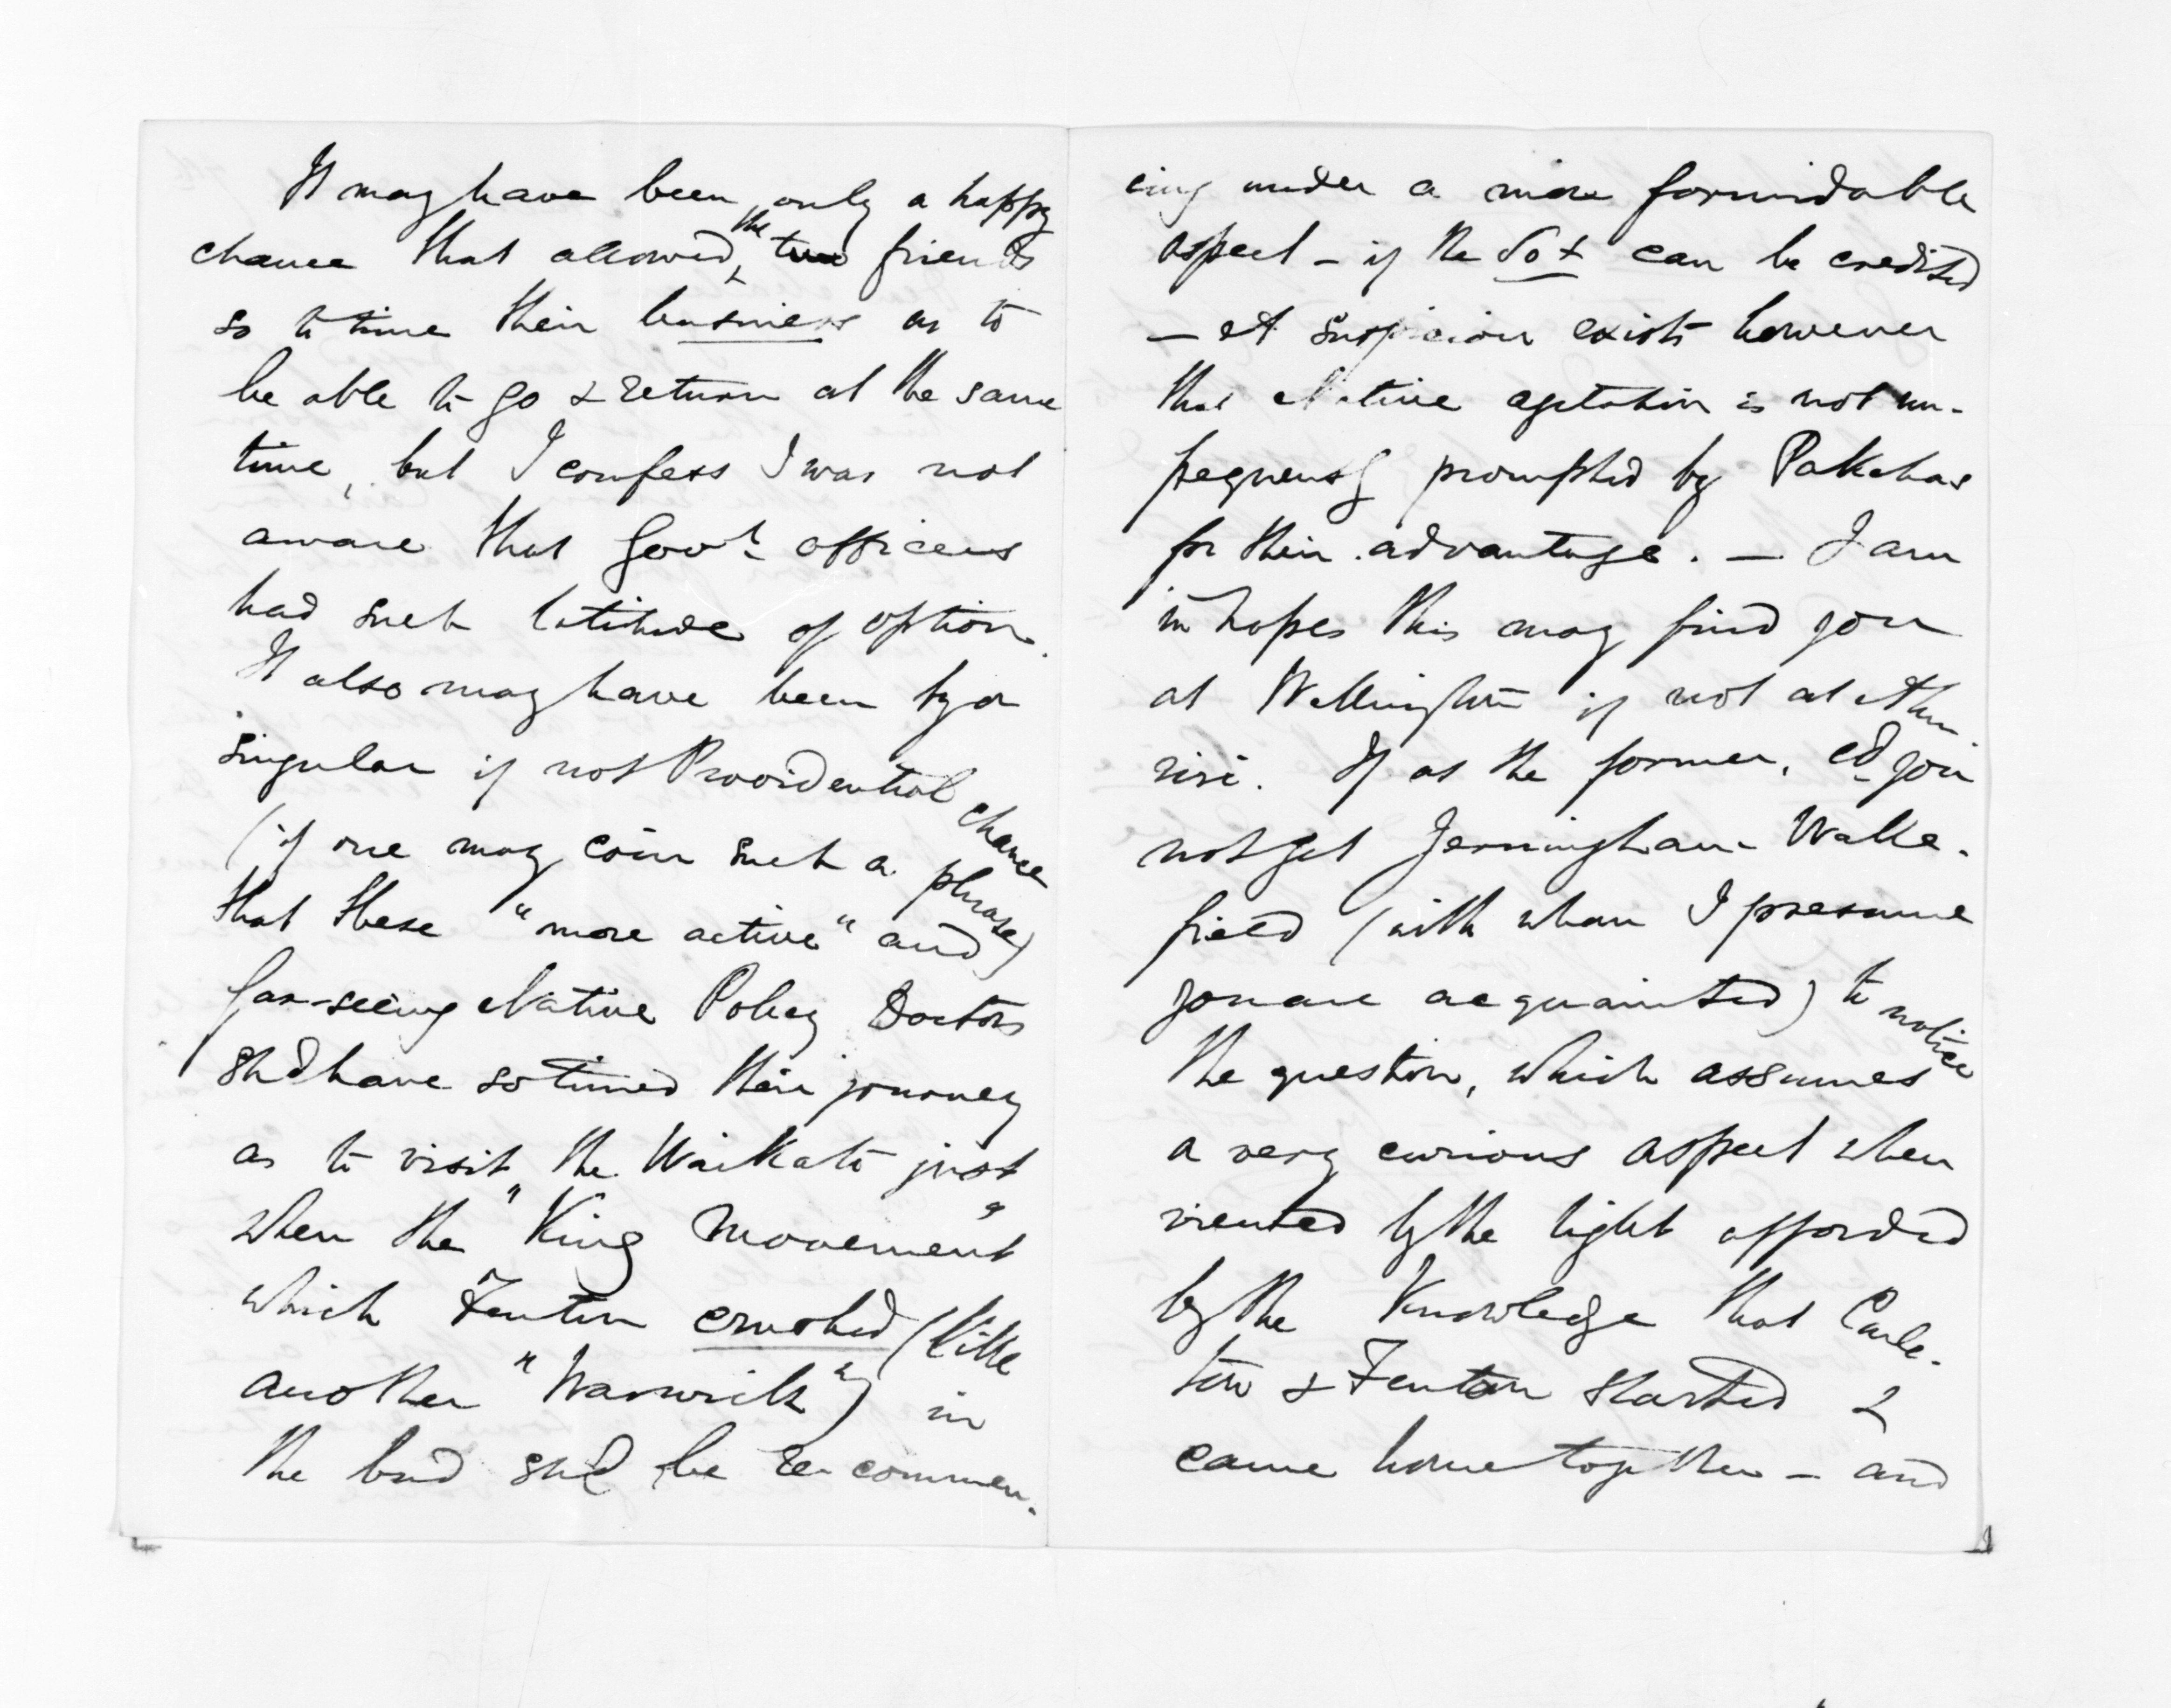 It may have been only a happy
chance that allowed the two friends
so to time their business as to
be able to go & return at the same
time, but I confess I was not
aware that Govt officers
had such latitude of option.
It also may have been by a
singular if not Providential chance
(if one may coin such a phrase)
that these "more active" and
far-seeing Native Policy Doctors
shd have so timed their journey
as to visit the Waikato just
when the "King Movement"
which Fenton crushed (like
another "Warwick") in
the bud shd be re-commen-
cing under a more formidable
aspect - if the can be credited
- A suspicion exists however
that Native agitation is not un-
frequently prompted by Pakehas
for their advantage. - I am
in hopes this may find you
at Wellington if not at Ahu
riri. If at the former, cd you
not get Jerningham Wake-
field (with whom I presume
you are acquainted) to notice
the question, which assumes
a very curious aspect when
viewed by the light afforded
by the knowledge that Carle-
ton & Fenton started &
came home together - and